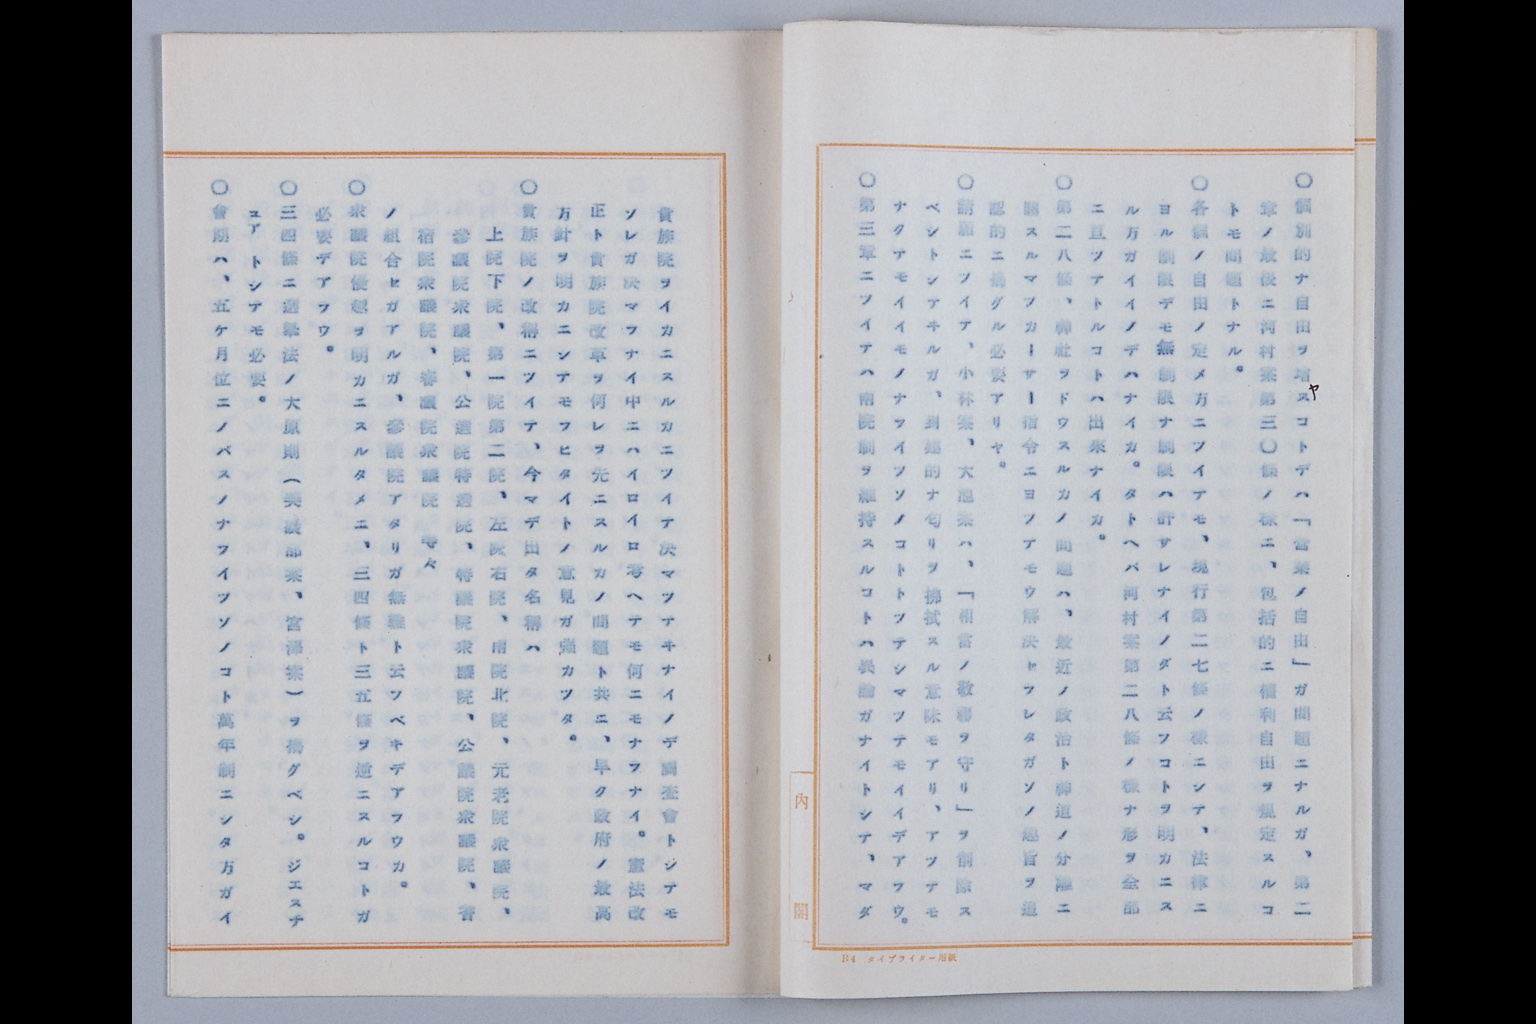 ○個別的ナ自由ヲ増ヤスコトデハ「営業ノ自由」ガ問題ニナルガ、第二
章ノ最後ニ河村案第三〇條ノ様ニ、包括的ニ權利自由ヲ規定スルコ
トモ問題トナル。
○各個ノ自由ノ定メ方ニツイテモ、現行第二七條ノ様ニシテ、法律ニ
ヨル制限デモ無制限ナ制限ハ許サレナイノダト云フコトヲ明カニス
ル方ガイイノデハナイカ。タトヘバ河村案第二八條ノ様ナ形ヲ全部
ニ亘ツテトルコトハ出來ナイカ。
○第二八條、神社ヲドウスルカノ問題ハ、最近ノ政治ト神道ノ分離ニ
關スルマツカーサー指令ニヨツテモウ解決セラレタガソノ趣旨ヲ追
認的ニ掲グル必要アリヤ。
○請願ニツイテ、小林案、大池案ハ、「相當ノ敬禮ヲ守リ」ヲ削除ス
ベシトシテヰルガ、封建的ナ匂リヲ拂拭スル意味モアリ、アツテモ
ナクテモイイモノナライツソノコトトツテシマツテモイイデアラウ。
○第三章ニツイテハ兩院制ヲ維持スルコトハ異論ガナイトシテ、マダ
貴族院ヲイカニスルカニツイテ決マツテヰナイノデ調査會トシテモ
ソレガ決マラナイ中ニハイロイロ考ヘテモ何ニモナラナイ。憲法改
正ト貴族院改革ヲ何レヲ先ニスルカノ問題ト共ニ、早ク政府ノ最高
方針ヲ明カニシテモラヒタイトノ意見ガ強カツタ。
○貴族院ノ改稱ニツイテ、今マデ出タ名稱ハ
上院下院、第一院第二院、左院右院、南院北院、元老院衆議院、
參議院衆議院、公選院特選院、特議院衆議院、公議院衆議院、耆
宿院衆議院、審議院衆議院 等々
ノ組合セガアルガ、參議院アタリガ無難ト云フベキデアラウカ。
○衆議院優越ヲ明カニスルタメニ、三四條ト三五條ヲ逆ニスルコトガ
必要デアラウ。
○三四條ニ選擧法ノ大原則（美濃部案、宮澤案）ヲ掲グベシ。ジエスチ
ユアトシテモ必要。
○會期ハ、五ケ月位ニノバスノナライツソノコト萬年制ニシタ方ガイ
內閣
B4 タイプライター用紙